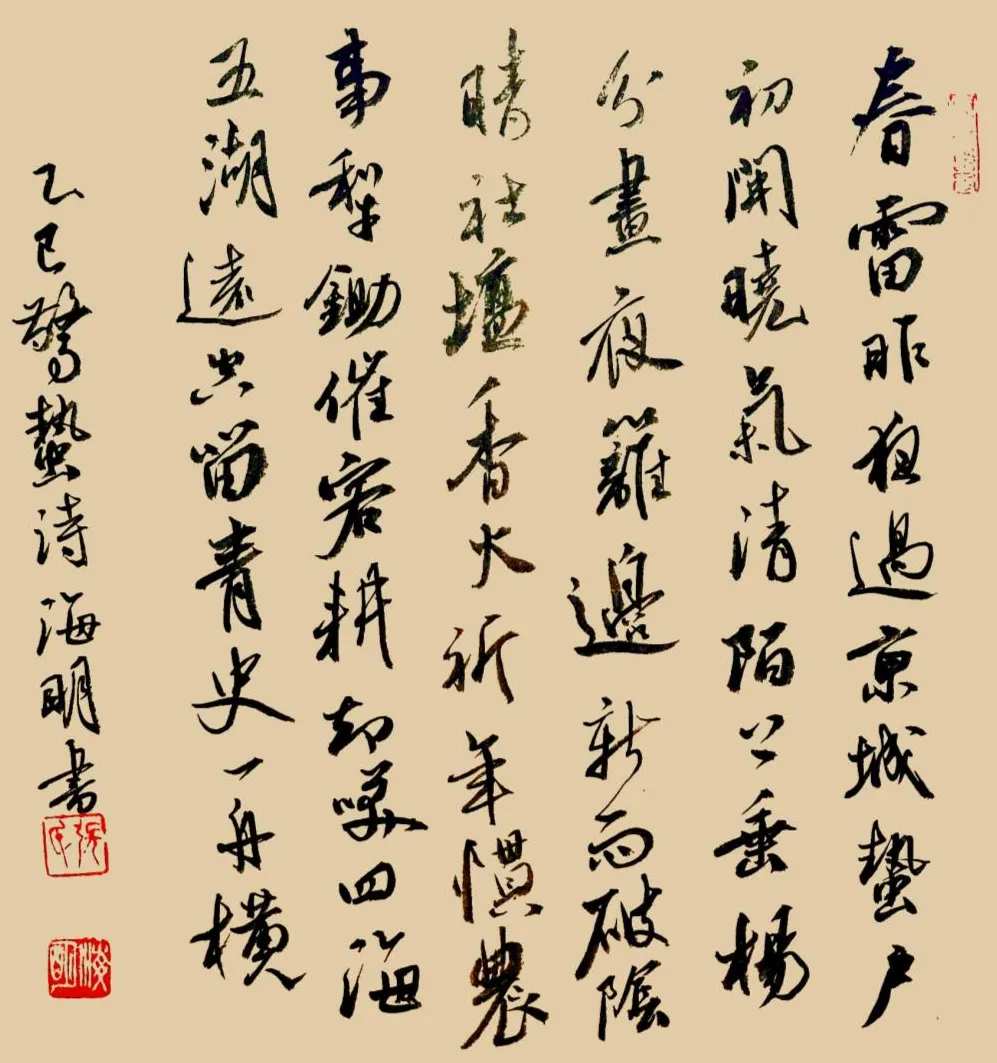 春雷昨夜過京城蟄户
初開曉氣清陌上垂楊
分晝夜籬邊新雨破陰
晴社壇香火祈年慣農
事犁鋤催客耕却嘆四海
五湖遠空留青史一舟橫
乙巳驚蟄詩海明書
海明